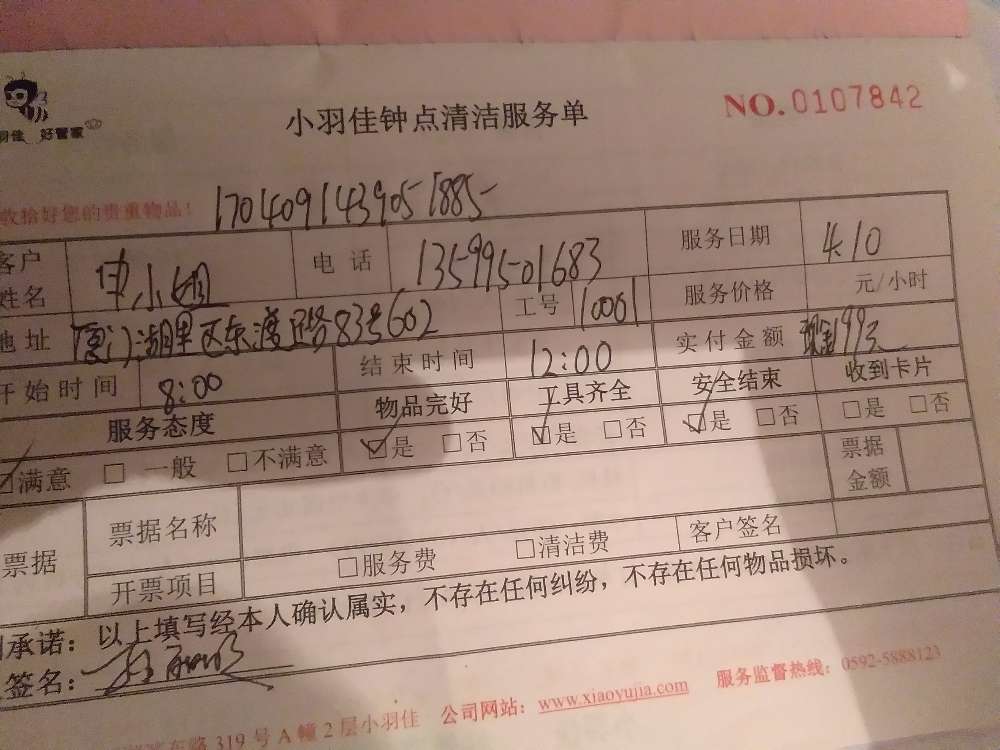 小羽佳钟点清洁服务单 NO.0107842
羽佳 好管家
收拾好您的贵重物品! 1704091439051885
客户姓名 小姐 电话 13599501683 服务日期 4.10
地址 厦门湖里区东渡路83号602 工号 10001 服务价格 元/小时
开始时间 8:00 结束时间 12:00 实付金额 现金199元
服务态度 物品完好 工具齐全 安全结束 收到卡片
☑满意 □一般 □不满意 ☑是 □否 ☑是 □否 ☑是 □否 □是 □否
票据 票据名称 票据金额
开票项目 □服务费 □清洁费 客户签名
承诺：以上填写经本人确认属实，不存在任何纠纷，不存在任何物品损坏。
签名：
东路319号A幢2层小羽佳 公司网站：www.xiaoyujia.com 服务监督热线：0592-5888123